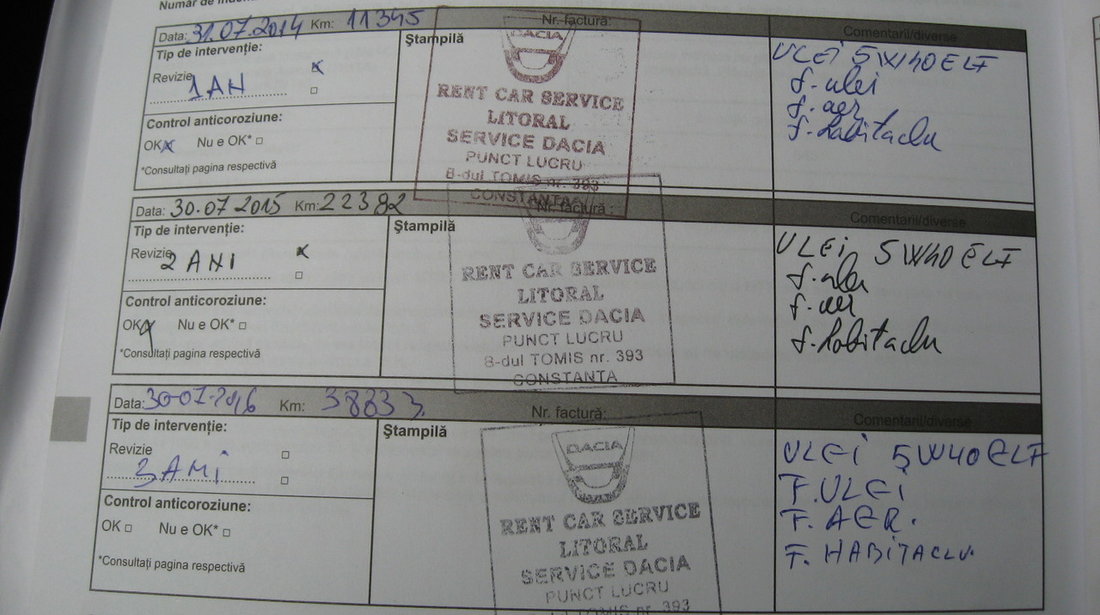 Data: 31.07.2014 Km: 11345 Nr. factură: Comentarii/diverse
Tip de intervenţie:
Ştampilă
Revizie
1 AN
Control anticoroziune:
OK Nu e OK*
*Consultaţi pagina respectivă
DACIA
RENT CAR SERVICE
LITORAL
SERVICE DACIA
PUNCT LUCRU
B-dul TOMIS nr. 393
CONSTANTA
ULEI 5W40 ELF
f. ulei
f. aer
f. habitaclu
Data: 30.07 2015 Km: 22382 Nr. factură: Comentarii/diverse
Tip de intervenţie:
Ştampilă
Revizie
2 ANI
Control anticoroziune:
OK Nu e OK*
*Consultaţi pagina respectivă
RENT CAR SERVICE
LITORAL
SERVICE DACIA
PUNCT LUCRU
B-dul TOMIS nr. 393
CONSTANTA
ULEI 5W40 ELF
f. ulei
f. aer
f. habitaclu
Data: 30-07-2016 Km: 38833 Nr. factură: Comentarii/diverse
Tip de intervenţie:
Ştampilă
Revizie
3 ANI
Control anticoroziune:
OK Nu e OK*
*Consultaţi pagina respectivă
DACIA
RENT CAR SERVICE
LITORAL
SERVICE DACIA
PUNCT LUCRU
TOMIS nr. 393
ULEI 5W40 ELF
F. ULEI
F. AER.
F. HABITACLU